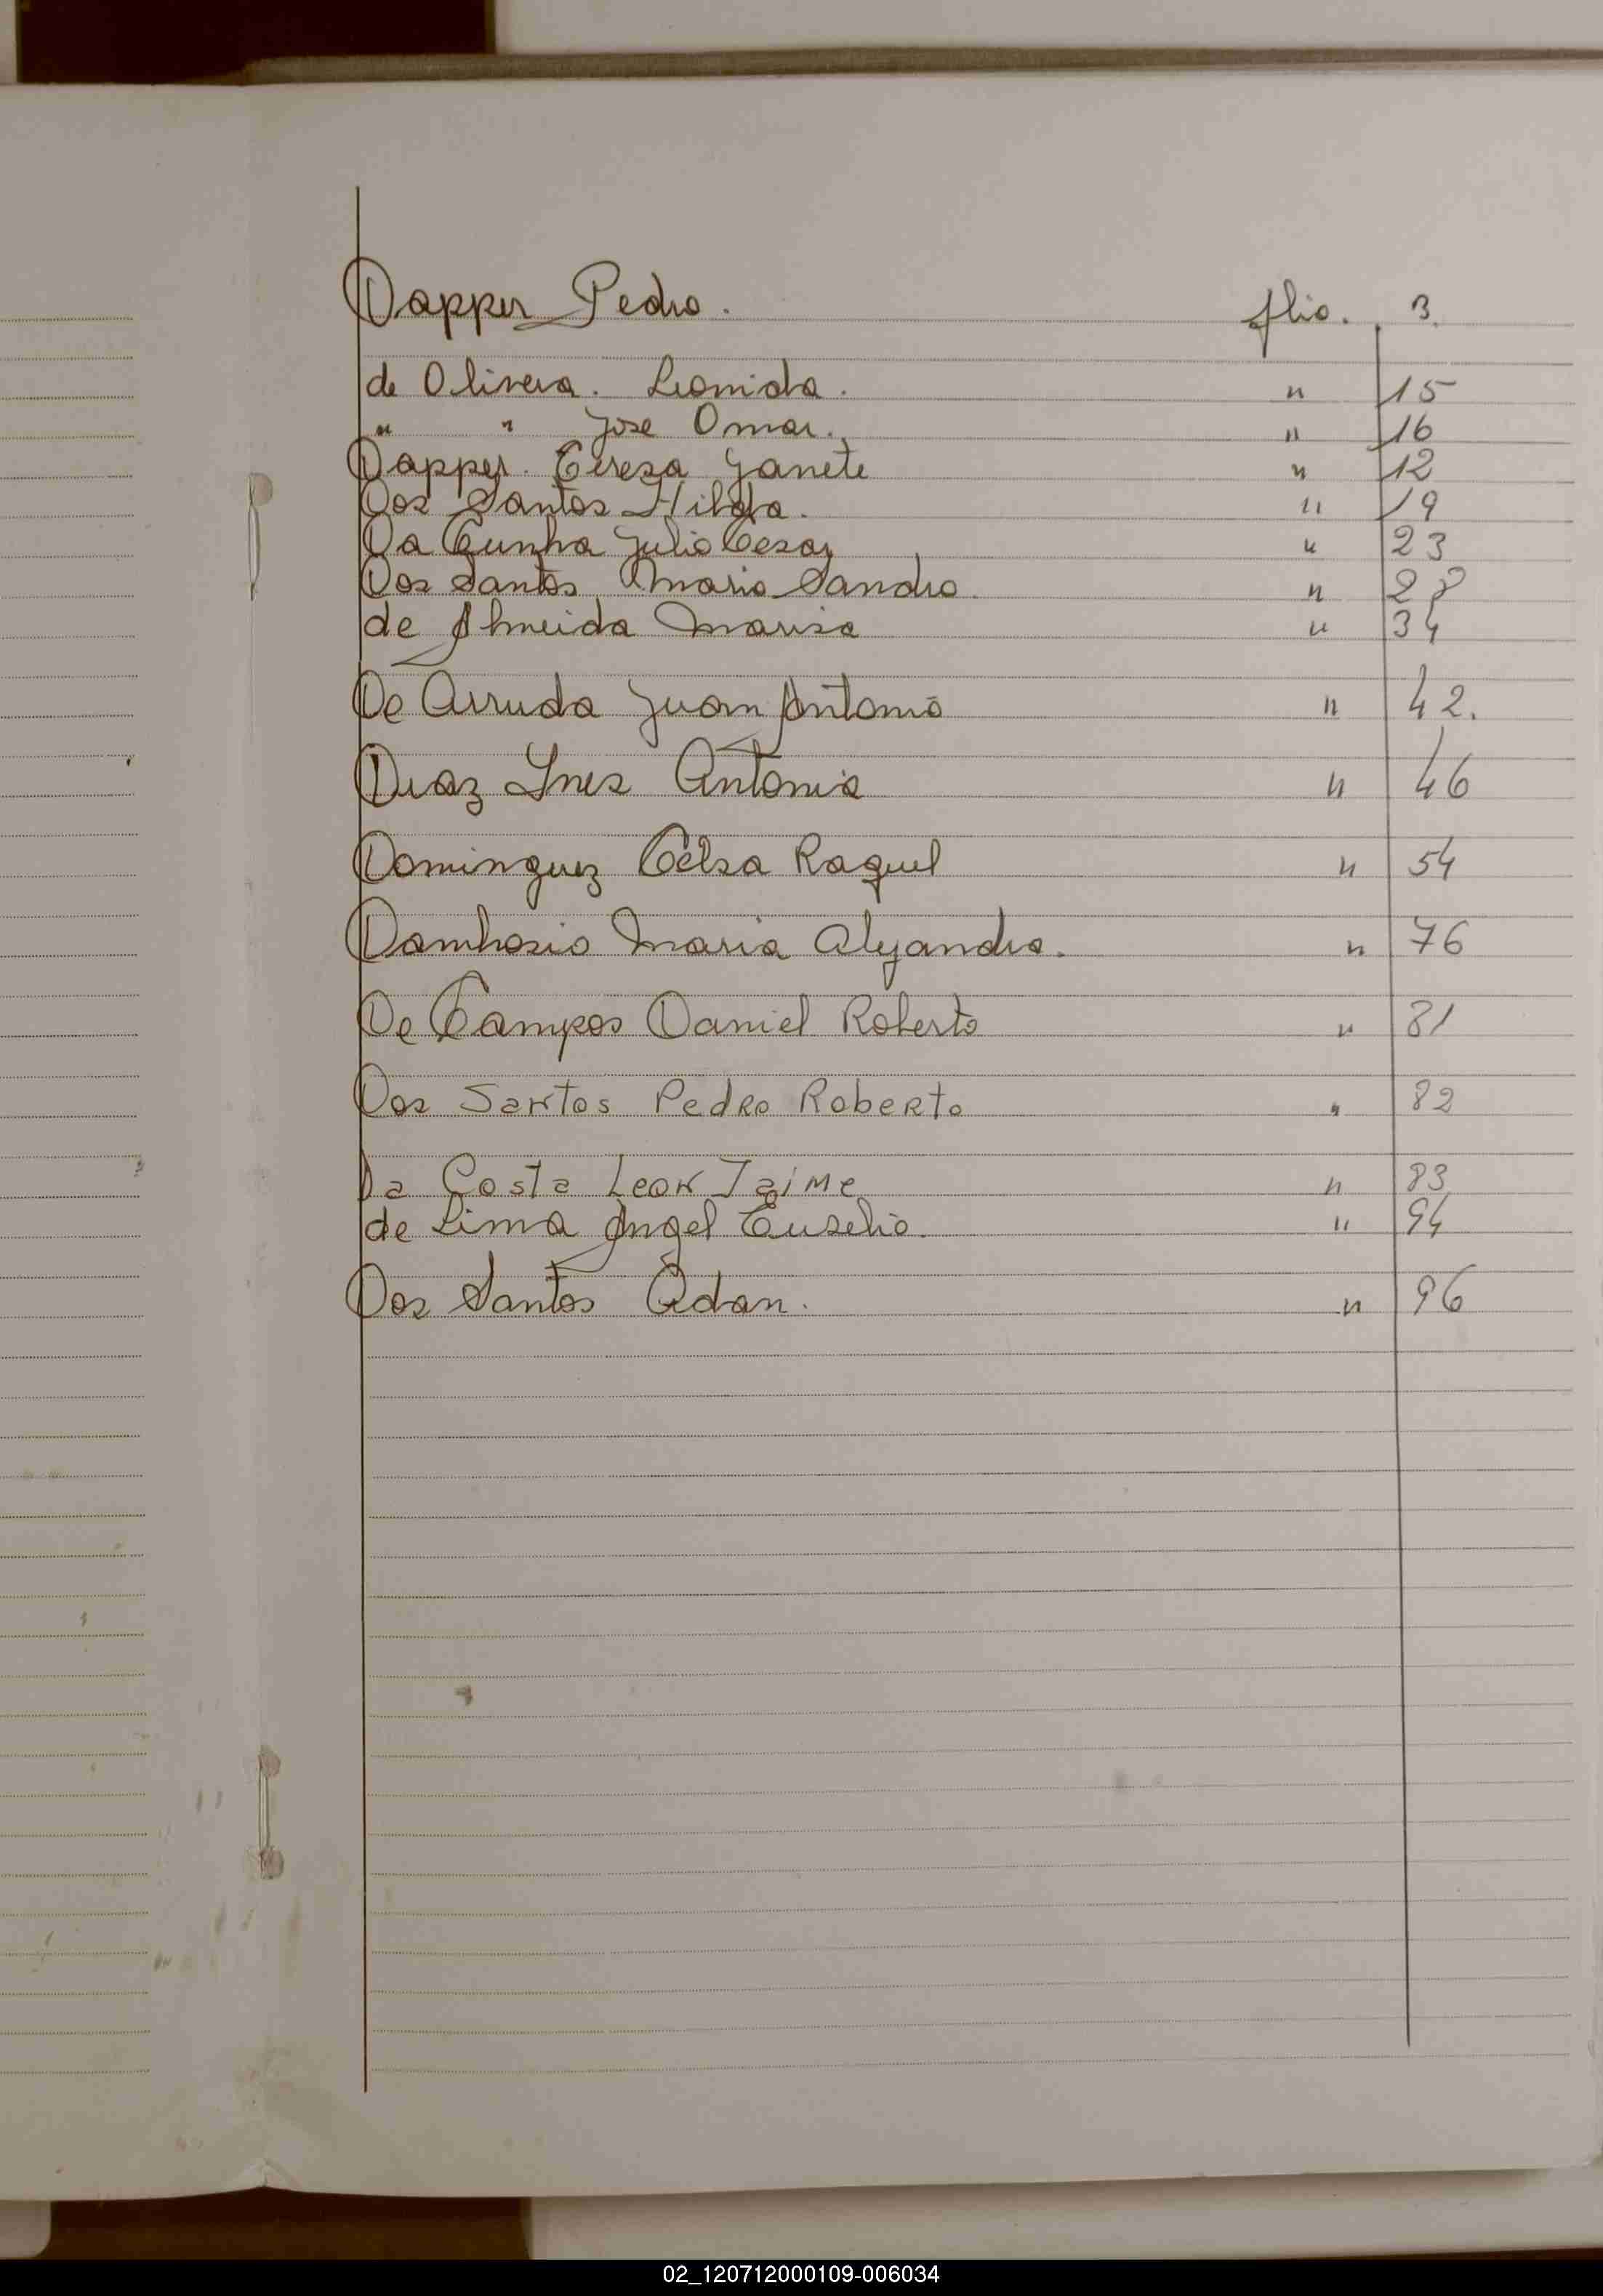 Dapper Pedro. flio. 3.
de Olivera. Leonida. " 15
" " Jose Omar. " 16
Dapper. Teresa Janete " 12
Dos Santos Hilda. " 19
Da Cunha Julio Cesar " 23
Dos Santos Mario Sandro. " 28
de Almeida Marisa " 34
De Arruda Juan Antonio " 42.
Diaz Ines Antonia " 46
Dominguez Celsa Raquel " 54
Dambosio Maria Alejandra. " 76
De Campos Daniel Roberto " 81
Dos Santos Pedro Roberto " 82
Da Costa Leon Jaime " 83
de Lima Angel Eusebio. " 94
Dos Santos Adan. " 96
02_120712000109-006034